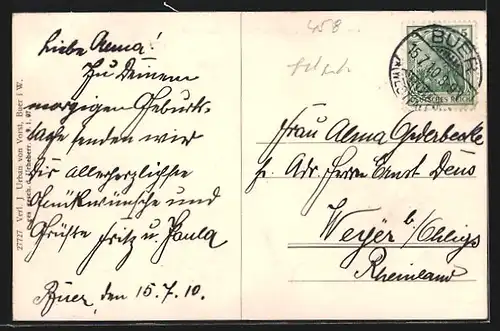 458
Liebe Alma!
Zu Deinem
morgigen Geburts-
tage senden wir
Dir allerherzlichste
Glückwünsche und
Grüße Fritz u. Paula
Buer, den 15.7.10.
5
BUER
15.7.10
DEUTSCHES REICH
Frau Alma
p. Adr. Herrn Ernst Deus
Weyer b/Ohligs
Rheinland
27727 Verl. J. Urban von Vorst, Buer i W.